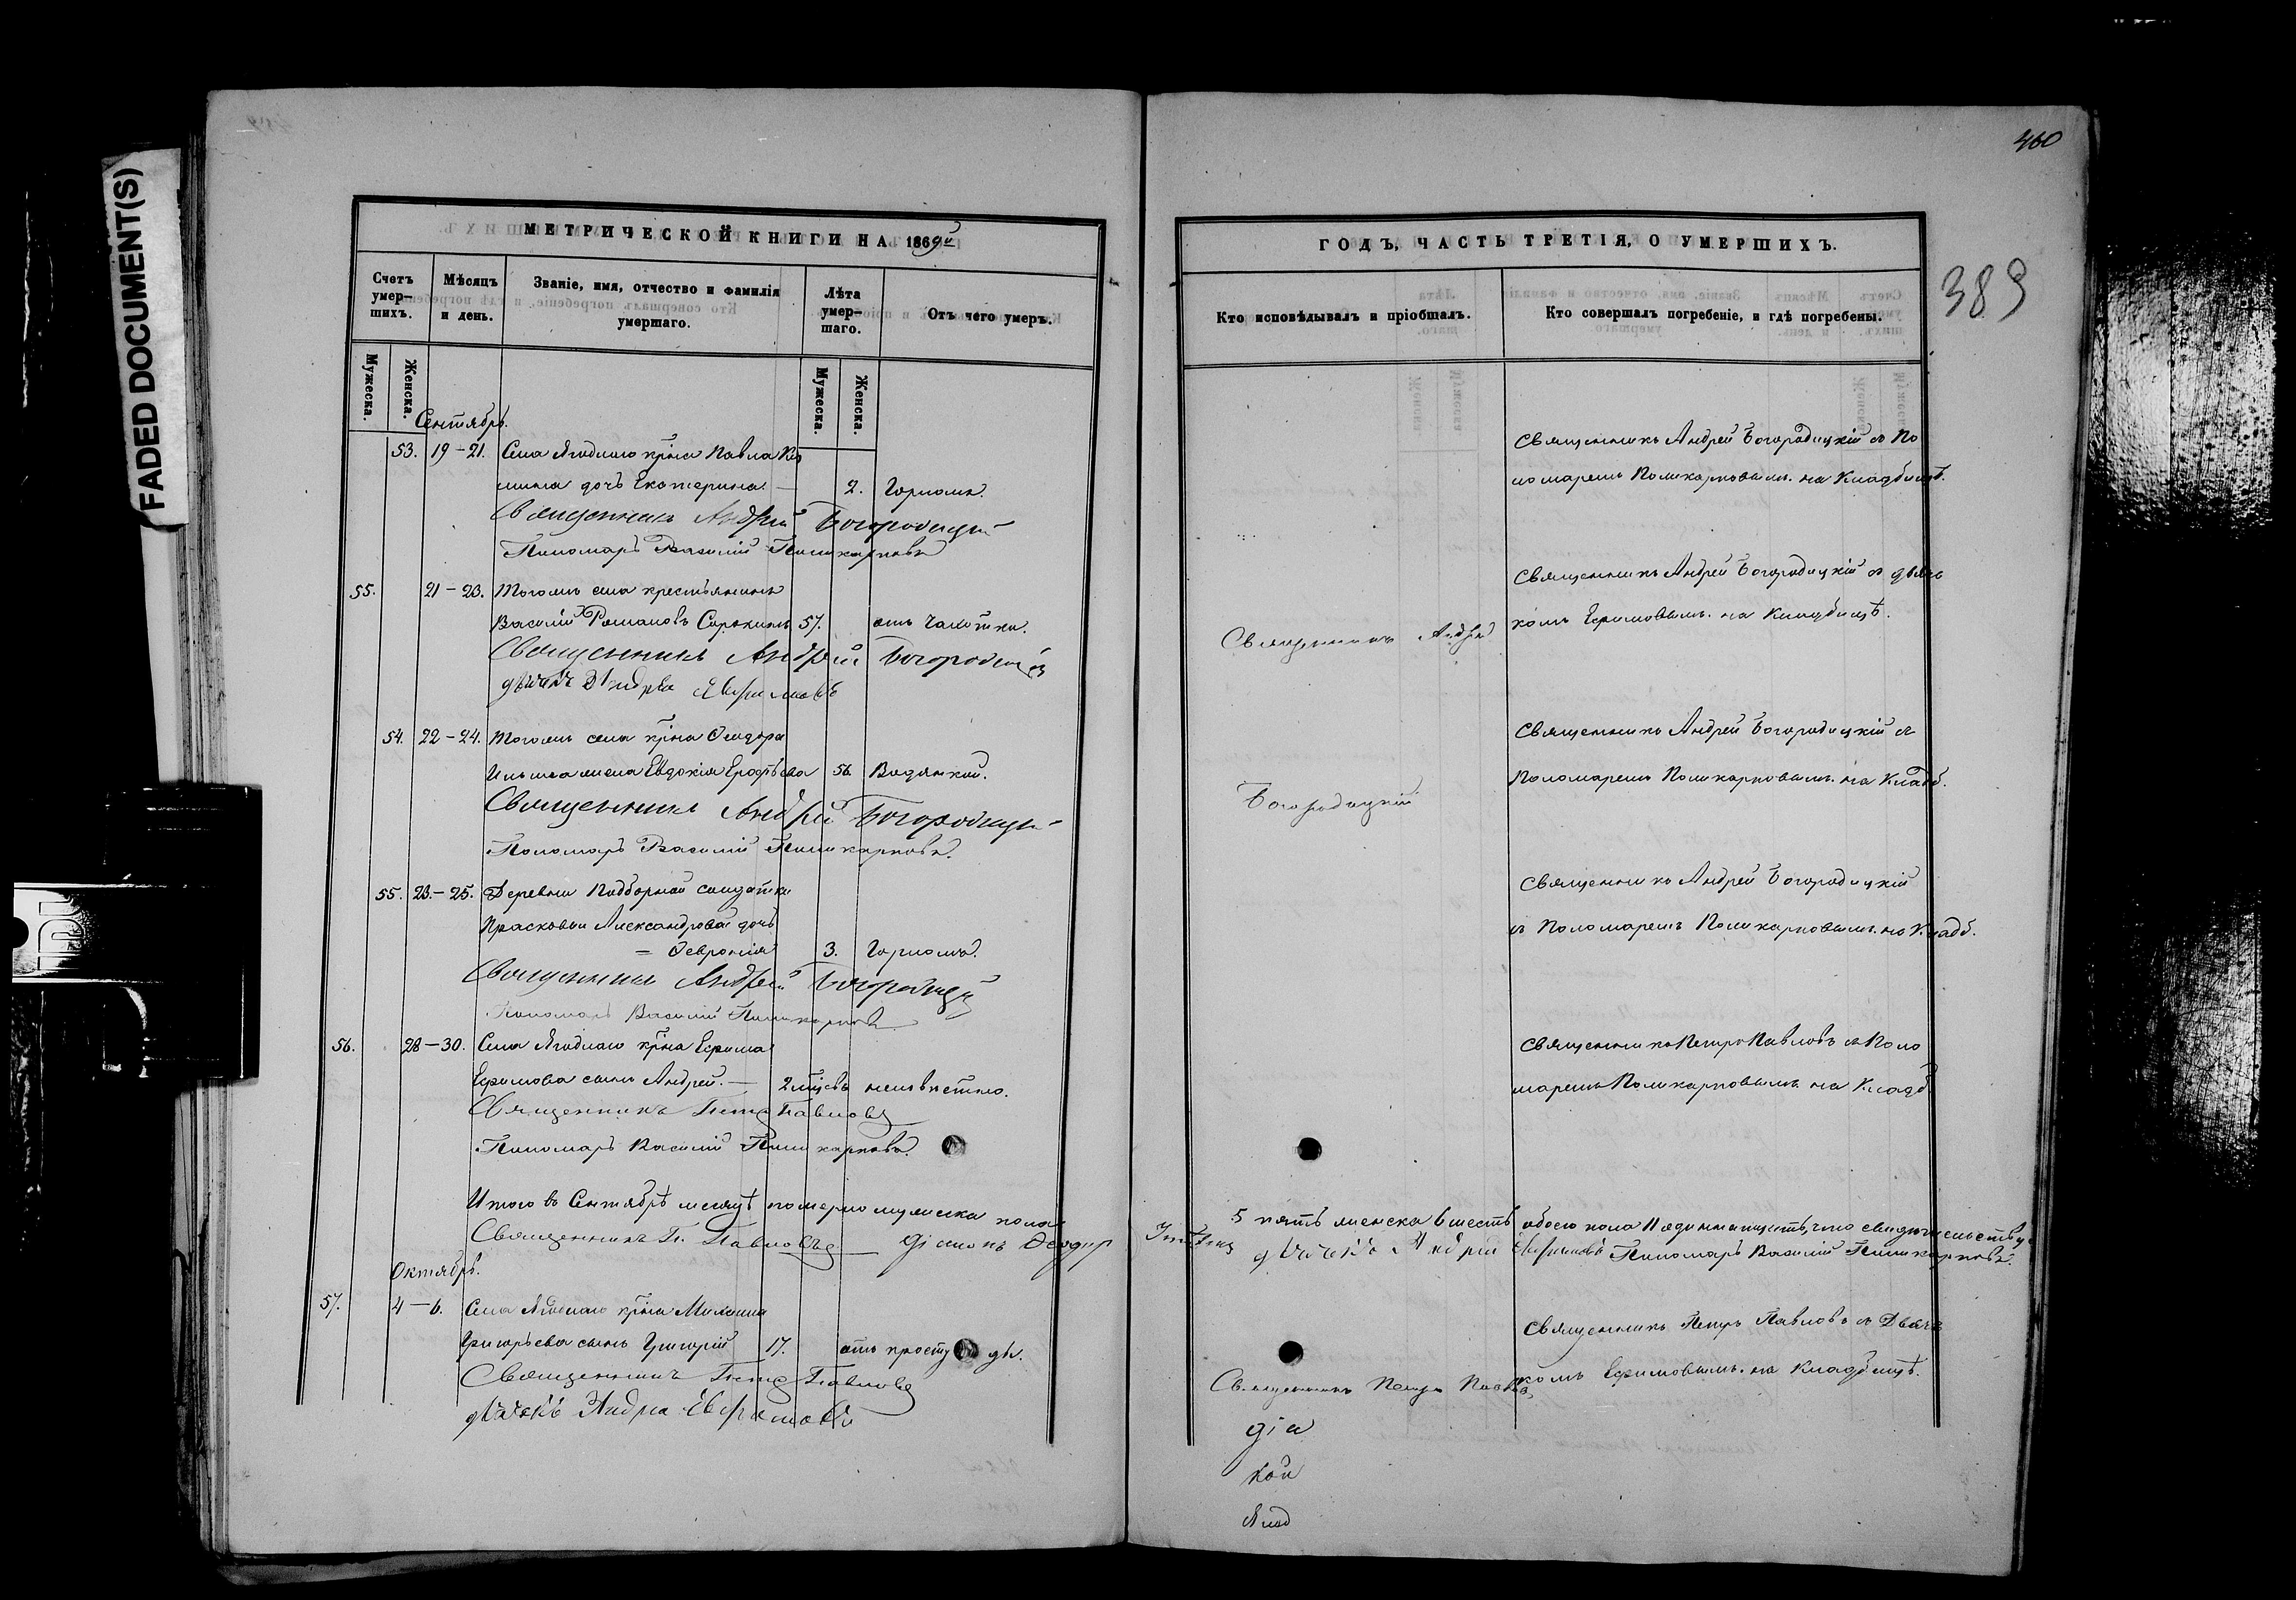 FADED DOCUMENT(S)
МЕТРИЧЕСКОЙ КНИГИ НА 1869й
Счетъ умер-шихъ.
Мѣсяцъ и день.
Званіе, имя, отчество и фамилія умершаго.
Лѣта умер-шаго.
Отъ чего умеръ.
Мужеска.
Женска.
Мужеска.
Женска.
Сентябрь.
53. 19-21. Села Ягоднаго крна Павла
мина дочь Екатерина 2. Горломъ.
Священникъ Андрей Богородицкій
Пономарь Василій Поликарповъ
55. 21-23. Тогожъ села крестьянинъ
Василій Романовъ Сорокинъ 57. отъ Чахотки.
Священникъ Андрей Богородицкій
дьячекъ Андрей Ефримовъ
54. 22-24. Тогожъ села крна Ѳеодора
Ильина жена Евдокія Ерофѣева 56. Водянкой.
Священникъ Андрей Богородицкій
Пономарь Василій Поликарповъ.
55. 23-25. Деревни Подборной солдатки
Прасковьи Александровой дочь
= Ѳевронія 3. Горломъ.
Священникъ Андрей Богородицкій
Пономарь Василій Поликарповъ
56. 28-30. Села Ягоднаго крна Ефрима
Ефримова сынъ Андрей. 2 мцевъ неизвѣстно.
Священникъ Петръ Павловъ
Пономарь Василій Поликарповъ.
Итого въ Сентябрѣ месяцѣ померло мужеска пола
Священникъ П. Павловъ Діаконъ Ѳеодор
Октябрь.
57. 4-6. Села Ягоднаго крна
Григорьева сынъ Григорій 17. отъ простуды.
Священникъ Петръ Павловъ
дьячекъ Андрей Ефримовъ
460
389
ГОДЪ, ЧАСТЬ ТРЕТІЯ, О УМЕРШИХЪ.
Кто исповѣдывалъ и пріобщалъ.
Кто совершалъ погребеніе, и гдѣ погребены.
Священникъ Андрей Богородицкій съ По
номаремъ Поликарповымъ. на Кладбищѣ.
Священникъ Андрей Богородицкій съ дьяч
Священникъ Андрей
комъ Ефримовымъ. на Кладбищѣ.
Священникъ Андрей Богородицкій съ
Пономаремъ Поликарповымъ. на Кладб.
Богородицкій
Священникъ Андрей Богородицкій
съ Пономаремъ Поликарповымъ. на Кладб.
Священникъ Петръ Павловъ съ Поно
маремъ Поликарповымъ на Кладб
5 пять женска 6 шесть обоего пола 11 одиннадцать, что свидѣтельству
дьячекъ Андрей Ефримовъ Пономарь Василій Поликарповъ.
Священникъ Петръ Павловъ съ Дьяч
комъ Ефримовымъ. на Кладбищѣ.
Священникъ Петръ Павловъ
діа
кой
Ягод